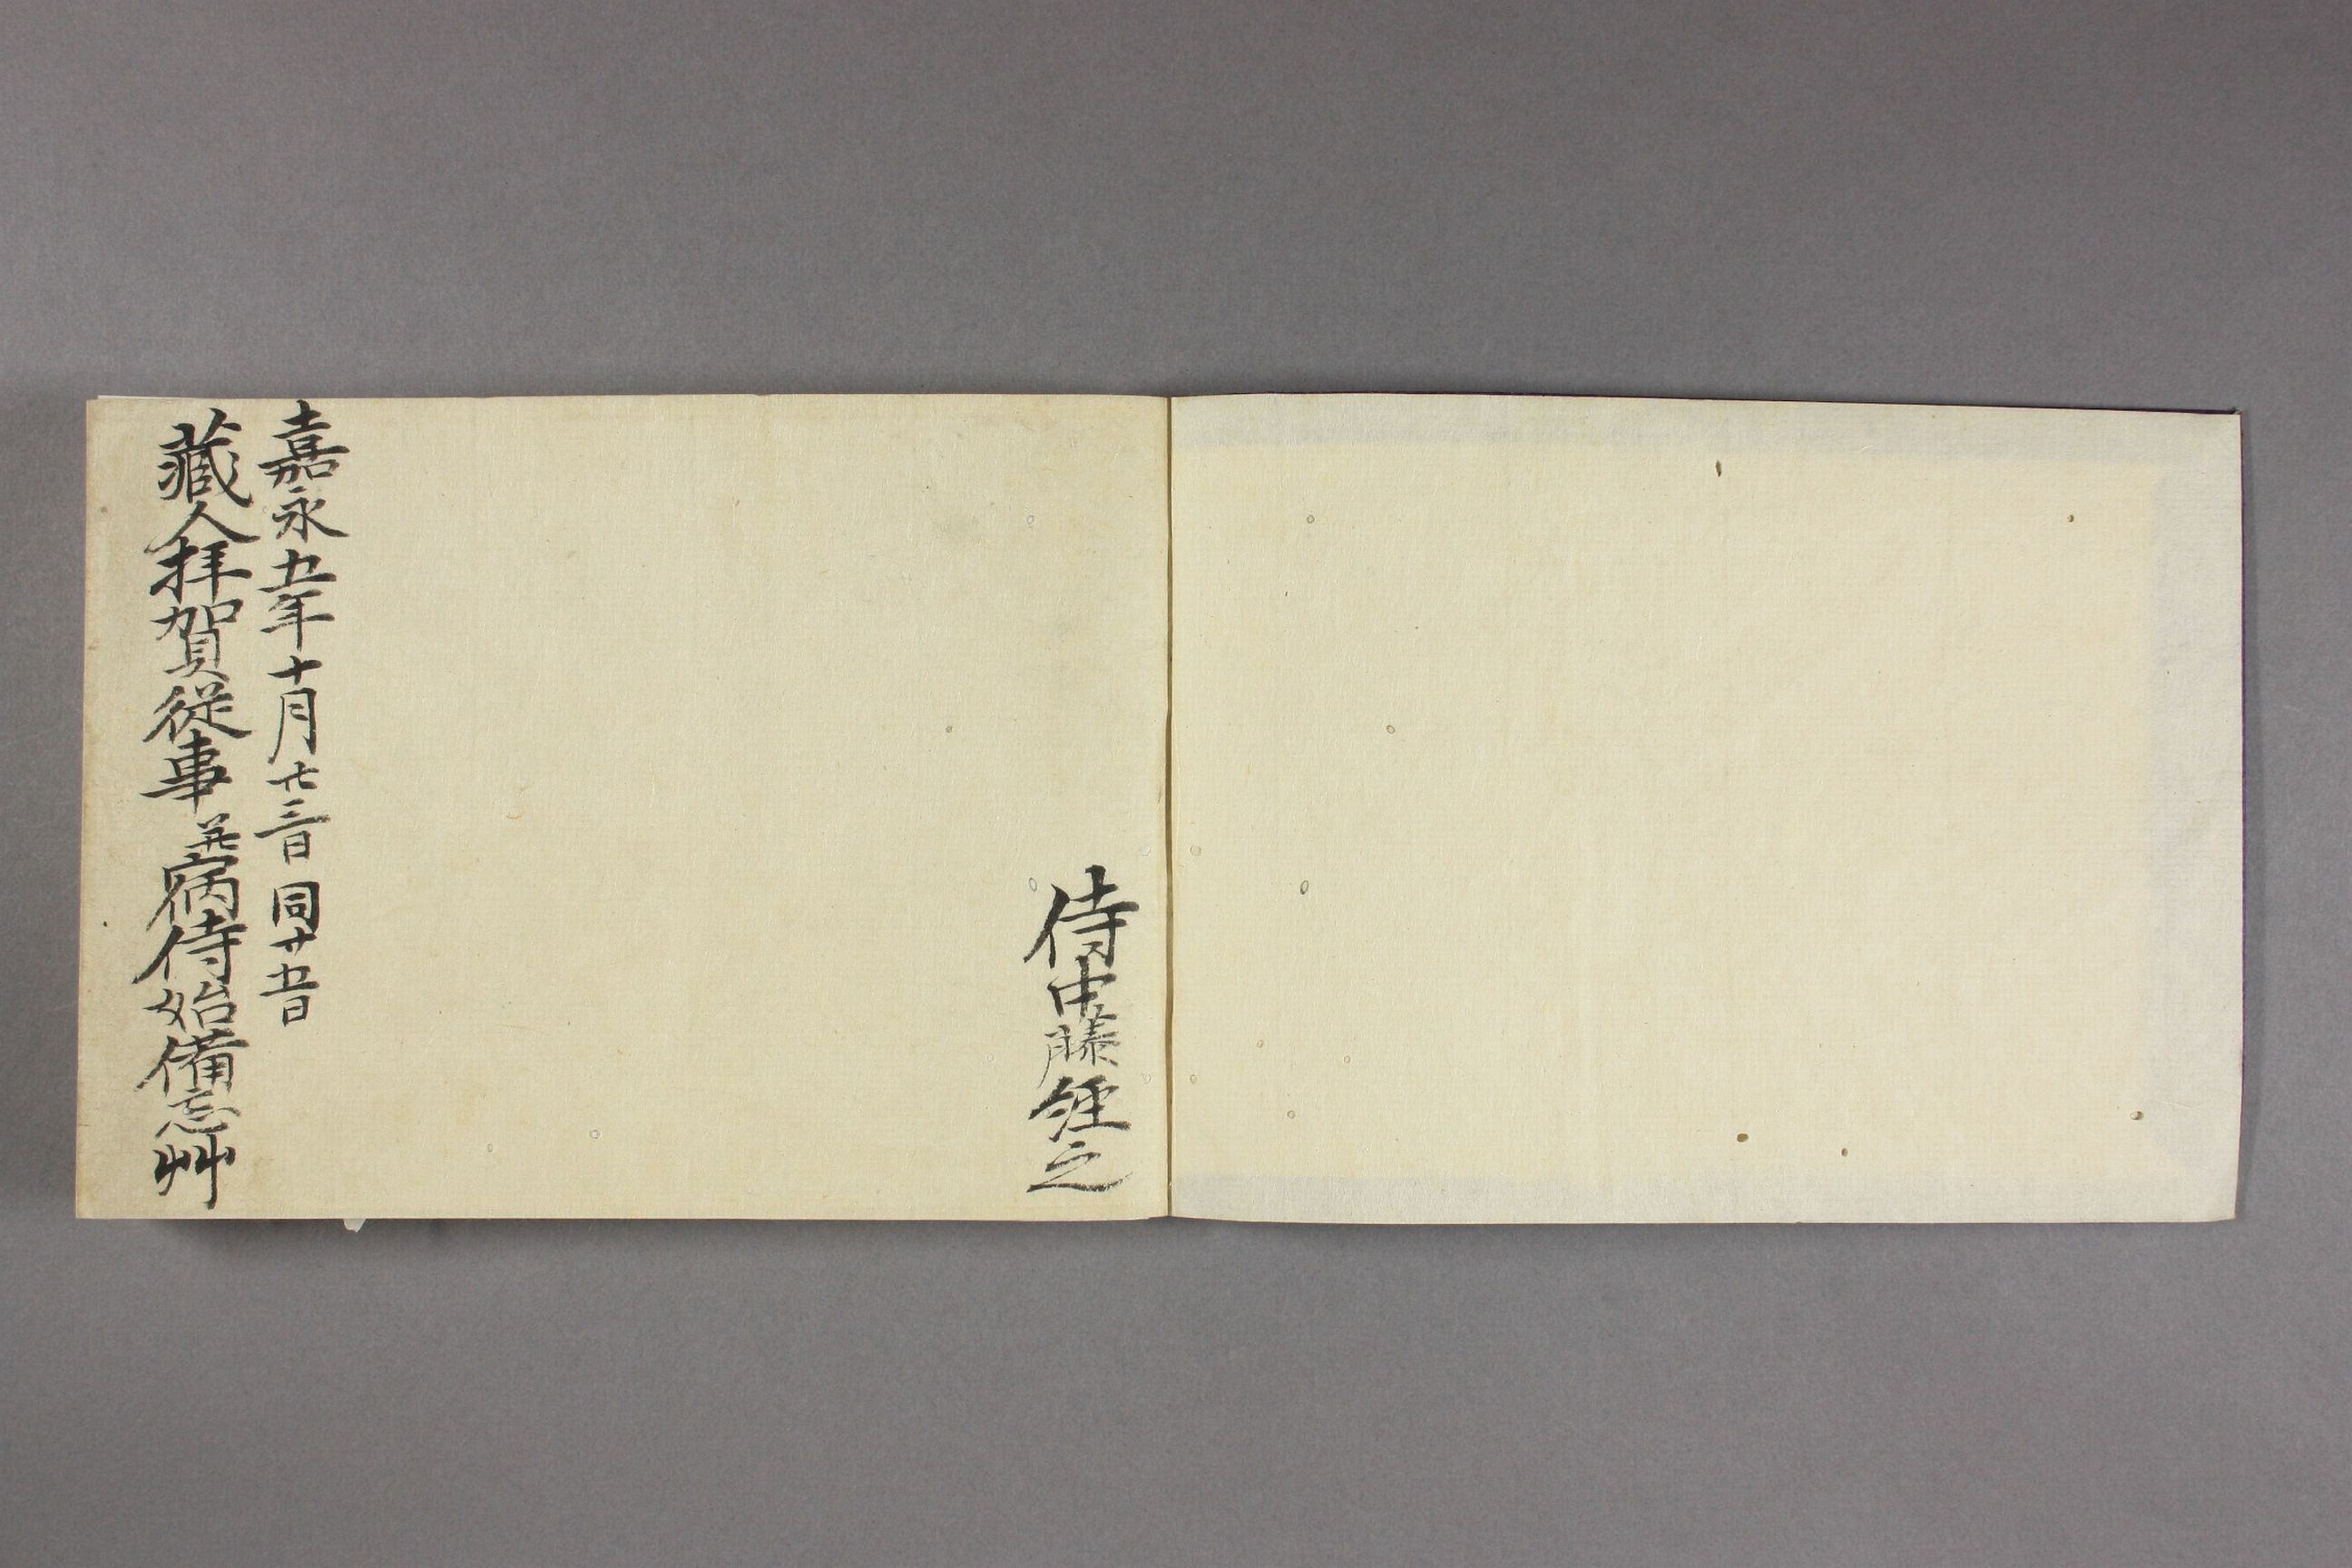 侍中藤經之
嘉永五年十月廿三日同廿五日
藏人拝賀従事並宿侍始備忘艸